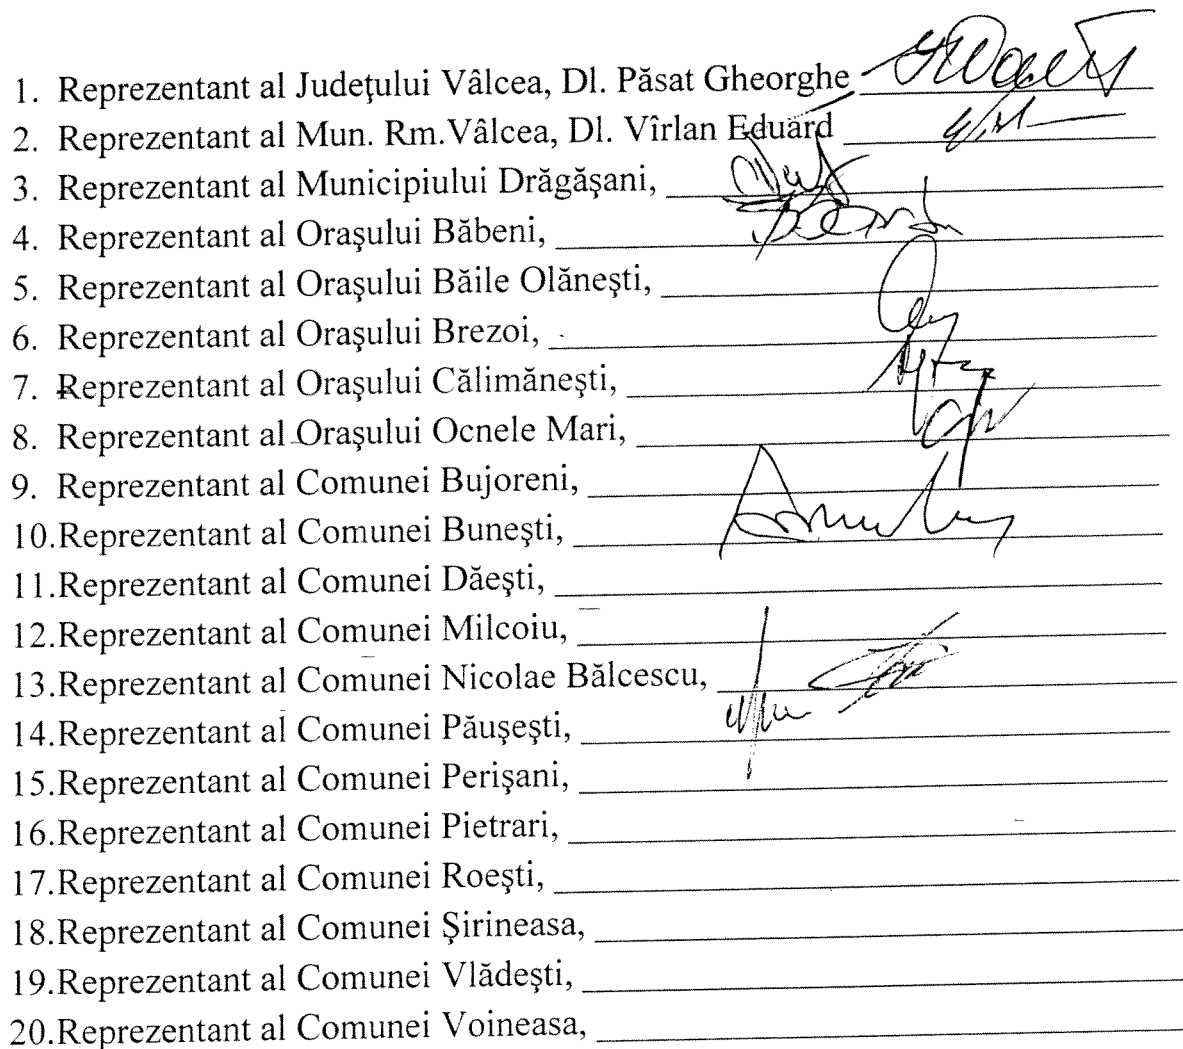 1. Reprezentant al Judeţului Vâlcea, Dl. Păsat Gheorghe
2. Reprezentant al Mun. Rm.Vâlcea, Dl. Vîrlan Eduard
3. Reprezentant al Municipiului Drăgăşani,
4. Reprezentant al Oraşului Băbeni,
5. Reprezentant al Oraşului Băile Olăneşti,
6. Reprezentant al Oraşului Brezoi,
7. Reprezentant al Oraşului Călimăneşti,
8. Reprezentant al Oraşului Ocnele Mari,
9. Reprezentant al Comunei Bujoreni,
10.Reprezentant al Comunei Buneşti,
11.Reprezentant al Comunei Dăeşti,
12.Reprezentant al Comunei Milcoiu,
13.Reprezentant al Comunei Nicolae Bălcescu,
14.Reprezentant al Comunei Păuşeşti,
15.Reprezentant al Comunei Perişani,
16.Reprezentant al Comunei Pietrari,
17.Reprezentant al Comunei Roeşti,
18.Reprezentant al Comunei Şirineasa,
19.Reprezentant al Comunei Vlădeşti,
20.Reprezentant al Comunei Voineasa,